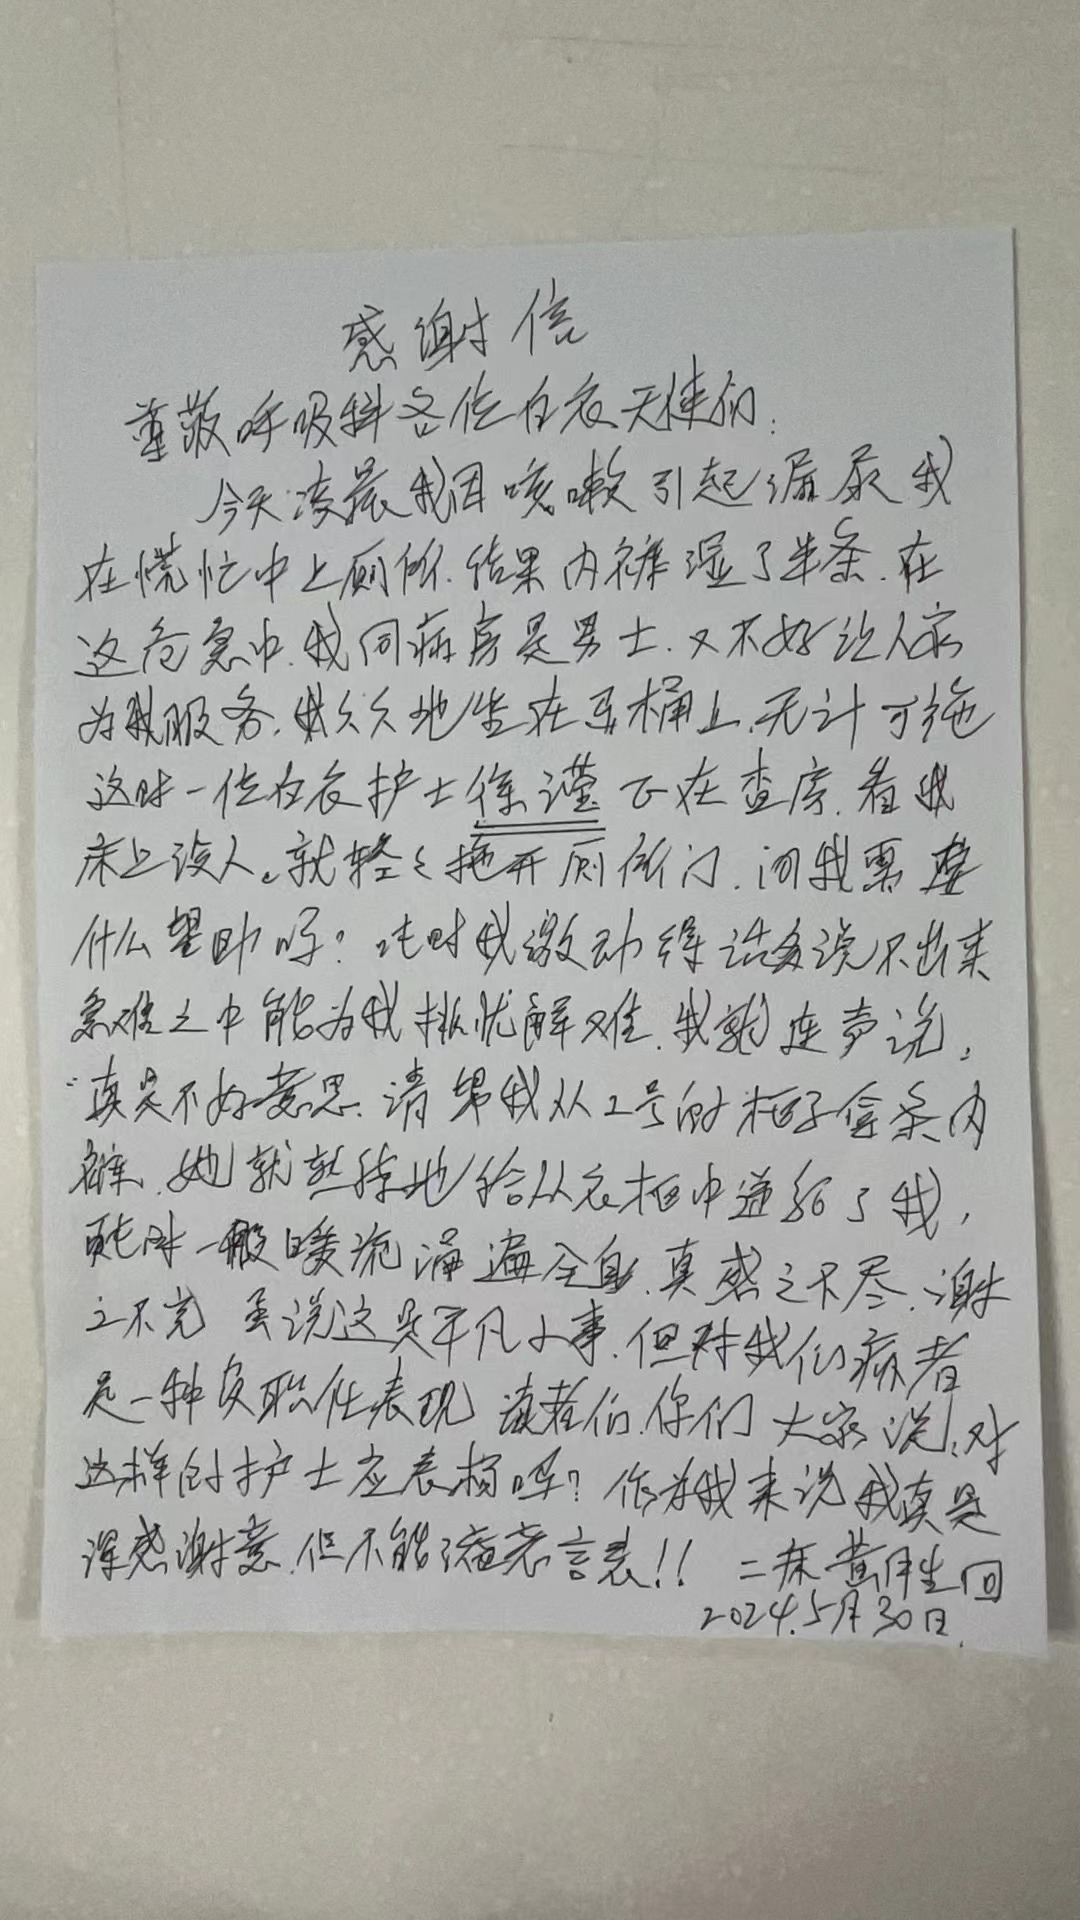 感谢信
尊敬呼吸科各位白衣天使们:
今天凌晨我因咳嗽引起漏尿我
在慌忙中上厕所.结果内裤湿了半条.在
这危急中.我同病房是男士.又不好让人家
为我服务.我久久地坐在马桶上.无计可施
这时一位白衣护士徐谨正在查房.看我
床上没人。就轻轻拖开厕所门.问我需要
什么望助吗?此时我激动得话多说不出来
急难之中能为我排忧解难.我就连声说:
"真是不好意思.请帮我从2号的柜子拿条内
裤.她就熟练地给从衣柜中递给了我,
此时一般暖流涌遍全身.真感之不尽.谢
之不完 虽说这是平凡小事.但对我们病者
是一种负职任表现 读者们.你们大家说,对
这样的护士应表扬吗?作为我来说我真是
深感谢意.但不能言表!! 二床黄月生
2024.5月30日.